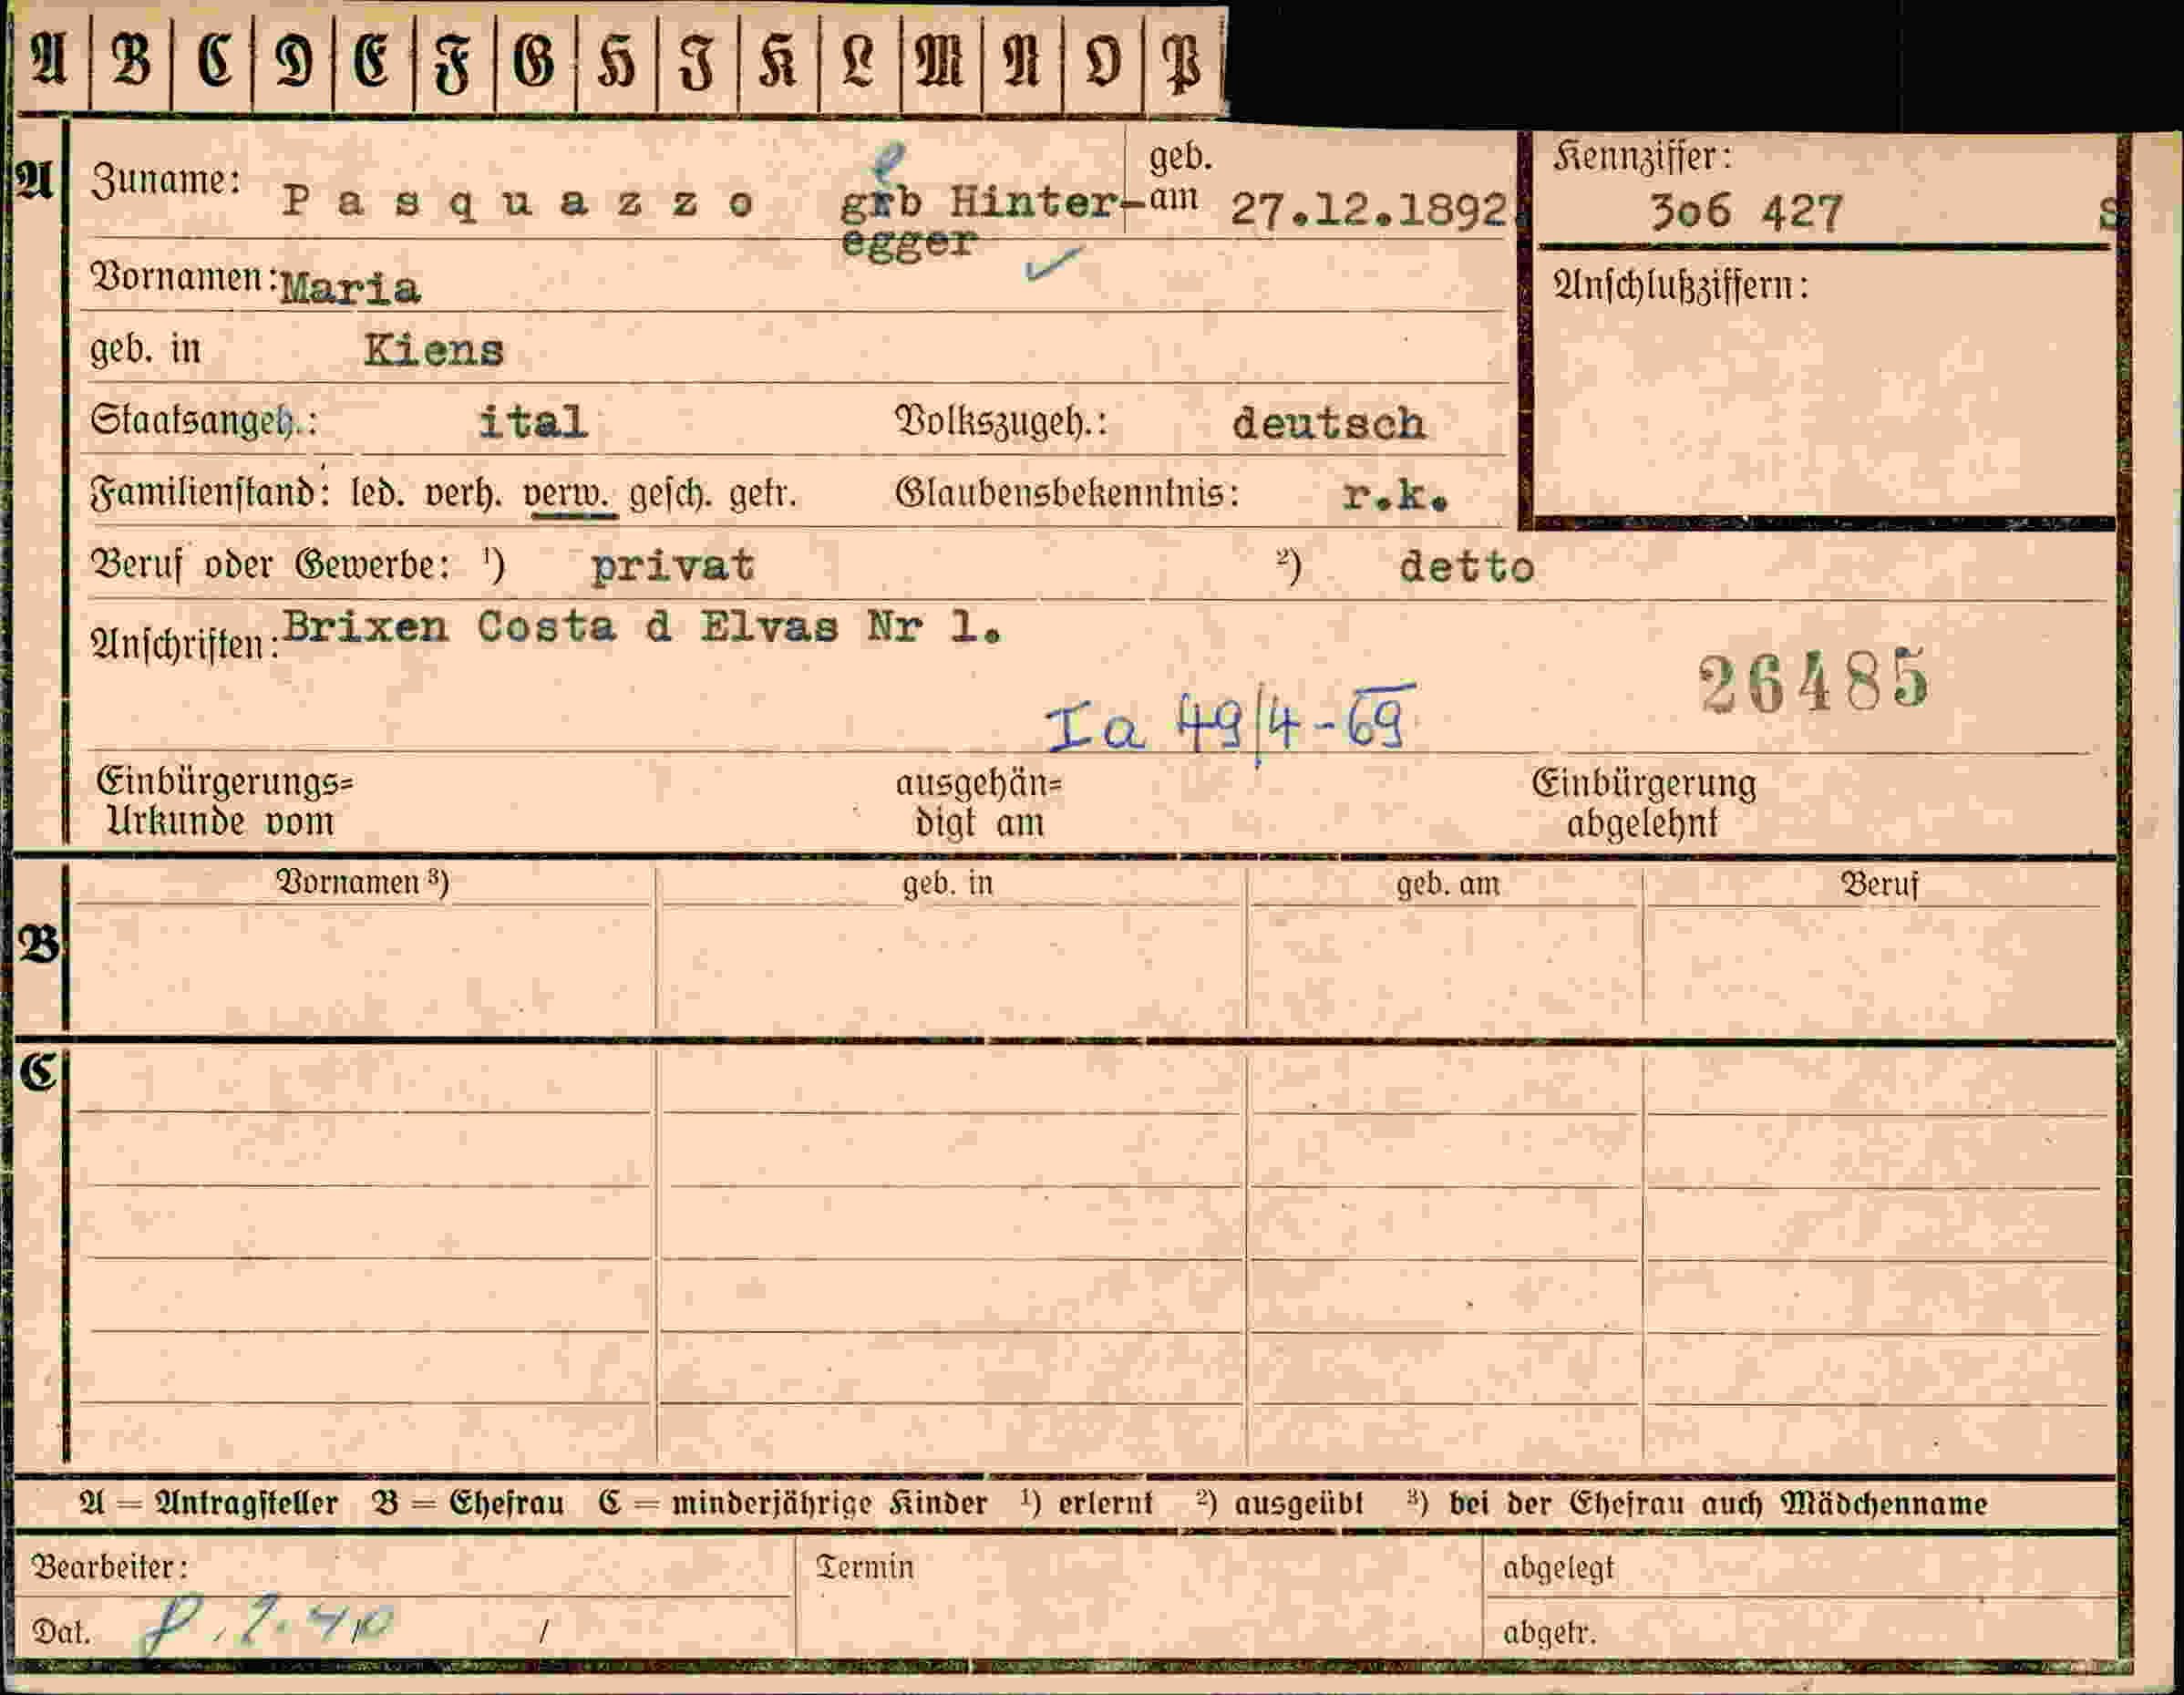 A B C D E F G H I K L M N O P
A Zuname: Pasquazzo grb Hinter- geb. am 27.12.1892. Kennziffer: 3o6 427 S
e
egger ✓
Vornamen: Maria Anschlußziffern:
geb. in Kiens
Staatsangeh.: ital Volkszugeh.: deutsch
Familienstand: led. verh. verw. gesch. getr. Glaubensbekenntnis: r.k.
Beruf oder Gewerbe: ¹) privat ²) detto
Anschriften: Brixen Costa d Elvas Nr 1.
26485
Ia 49/4-69
Einbürgerungs= ausgehän= Einbürgerung
Urkunde vom digt am abgelehnt
Vornamen ³) geb. in geb. am Beruf
B
C
A = Antragsteller B = Ehefrau C = minderjährige Kinder ¹) erlernt ²) ausgeübt ³) bei der Ehefrau auch Mädchenname
Bearbeiter: Termin abgelegt
Dat. 8.2.40 / abgetr.